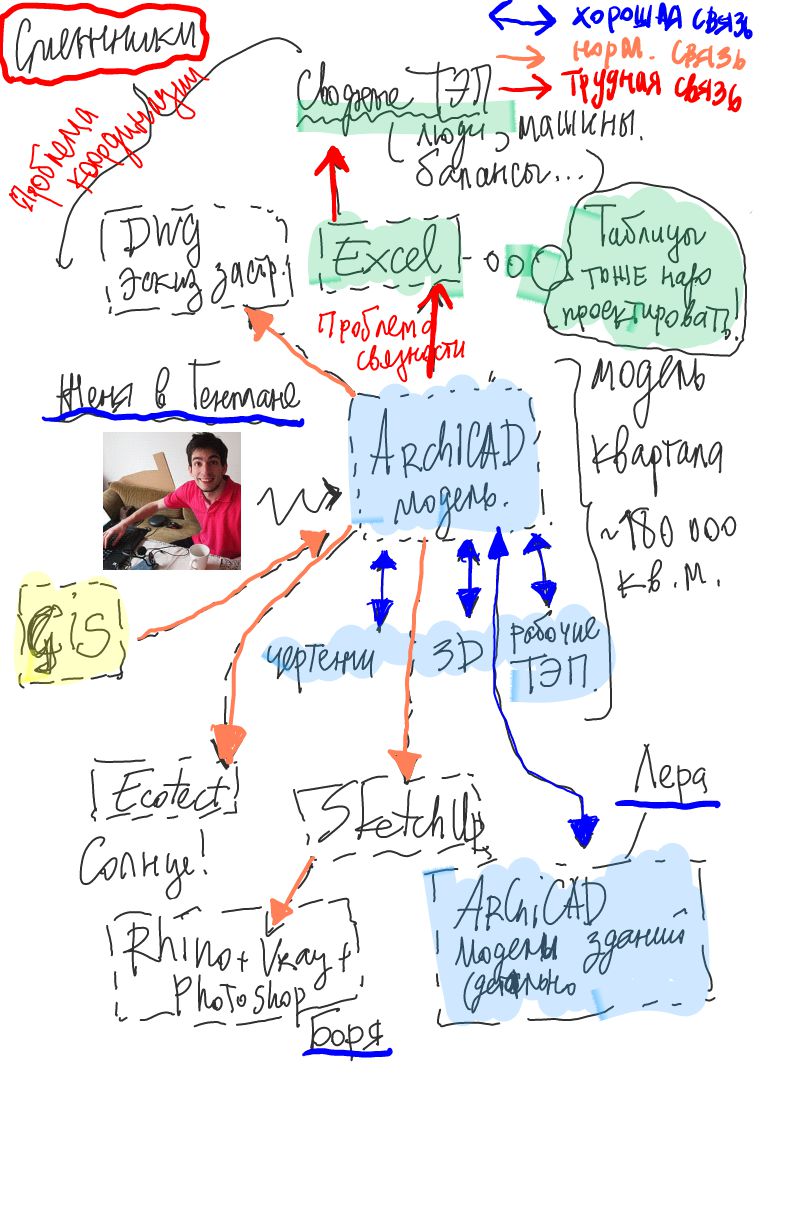 Смежники
хорошая связь
норм. связь
трудная связь
Проблема
координации
Сводные ТЭП
(люди, машины.
балансы...)
DWG
эскиз застр.
Excel
Таблицы
тоже надо
проектировать!
Проблема
связности
Женя в Генплане
ArchiCAD
модель.
модель
квартала
~180 000
кв.м.
gis
чертежи
3D
рабочие
ТЭП.
Ecotect
Солнце!
SketchUp
Лера
Rhino + Vray +
Photoshop
Боря
ArchiCAD
модели зданий
(детально